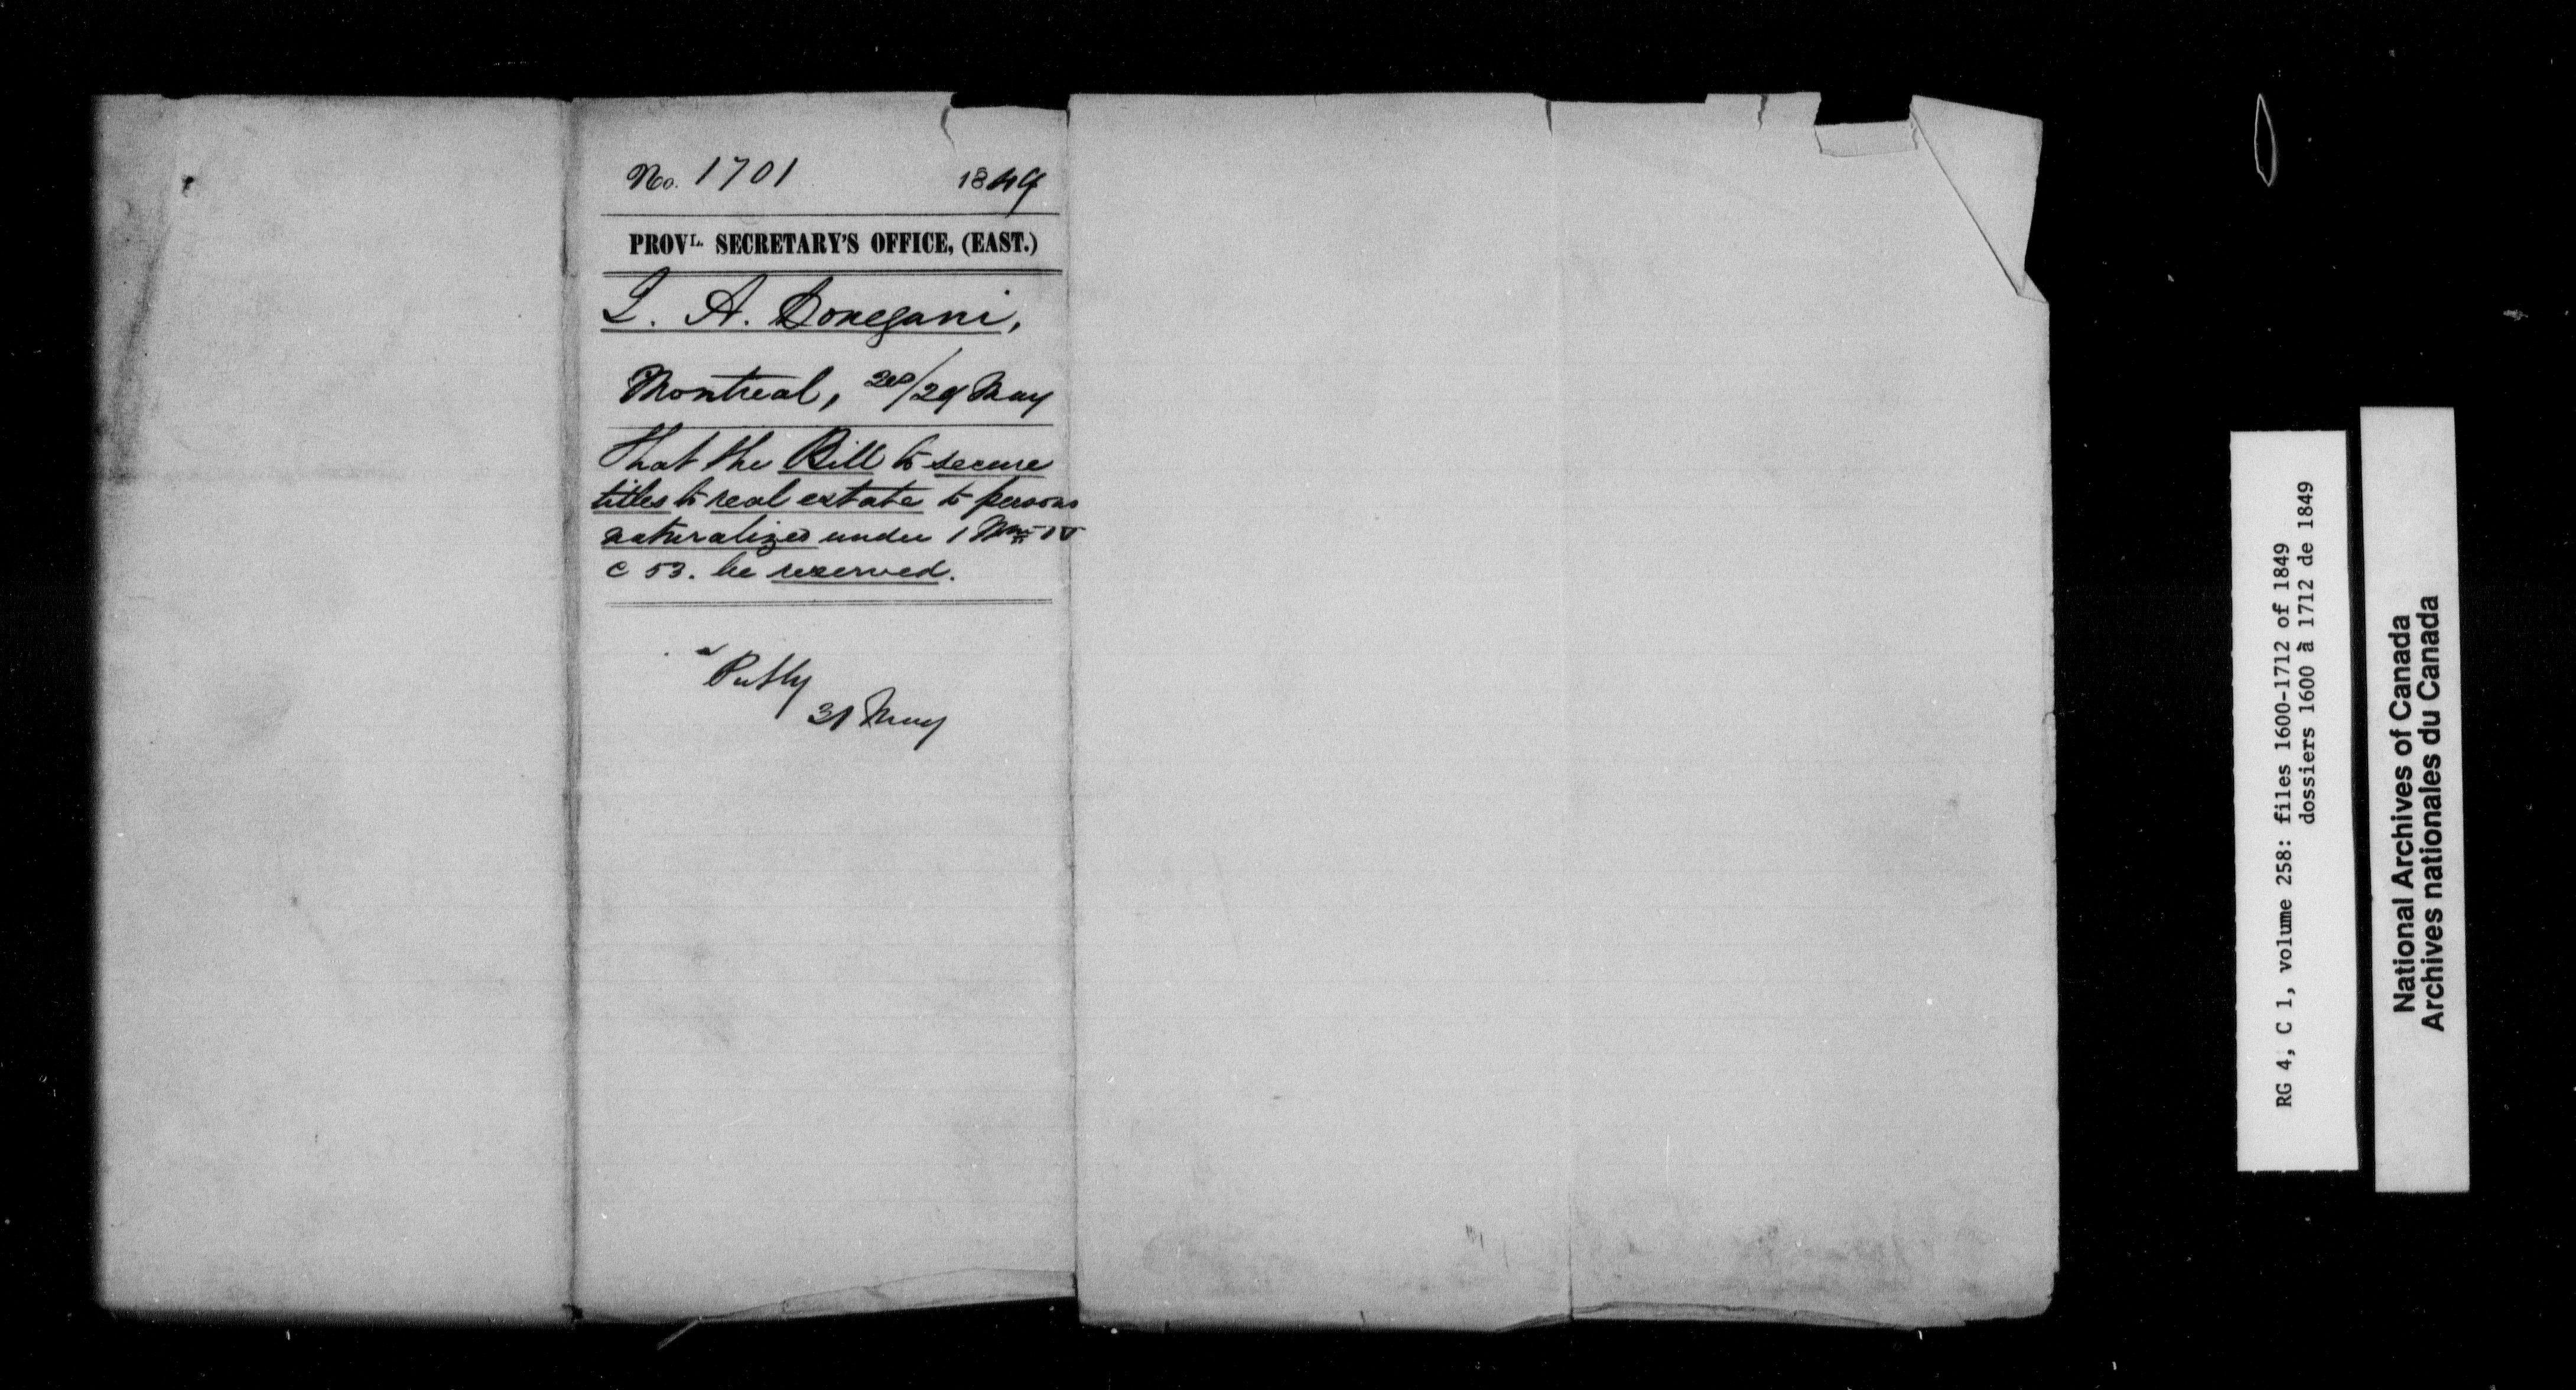 No. 1701 1849
PROVL. SECRETARY'S OFFICE, (EAST.)
J. A. Donegani,
Montreal, 20/29 May
That the Bill to secure
titles to real estate to persons
naturalized under 1 Wm IV
c 53. be reserved.
31 May
RG 4, C 1, volume 258: files 1600-1712 of 1849
dossiers 1600 à 1712 de 1849
National Archives of Canada
Archives nationales du Canada